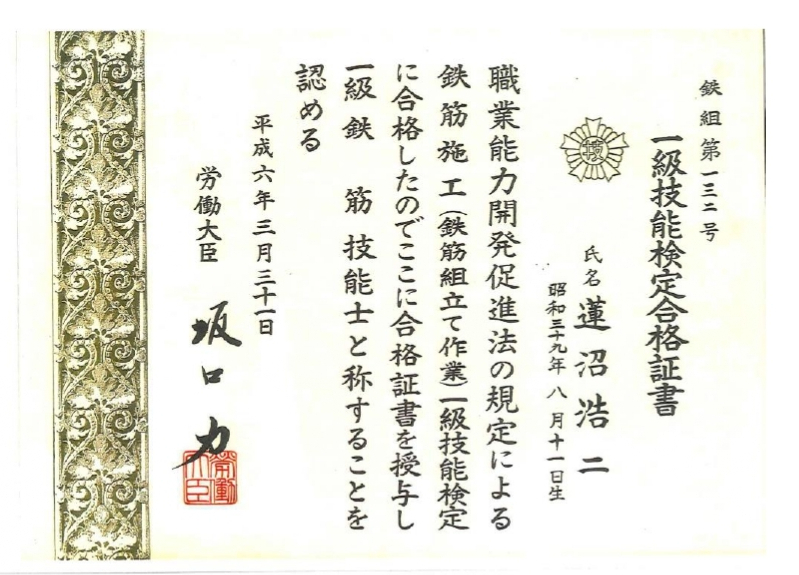 鉄組第一三二号
一級技能検定合格証書
氏名 蓮沼浩二
昭和三十九年八月十一日生
職業能力開発促進法の規定による
鉄筋施工(鉄筋組立て作業)一級技能検定
に合格したのでここに合格証書を授与し
一級鉄筋技能士と称することを
認める
平成六年三月三十一日
労働大臣 坂口力
労働大臣